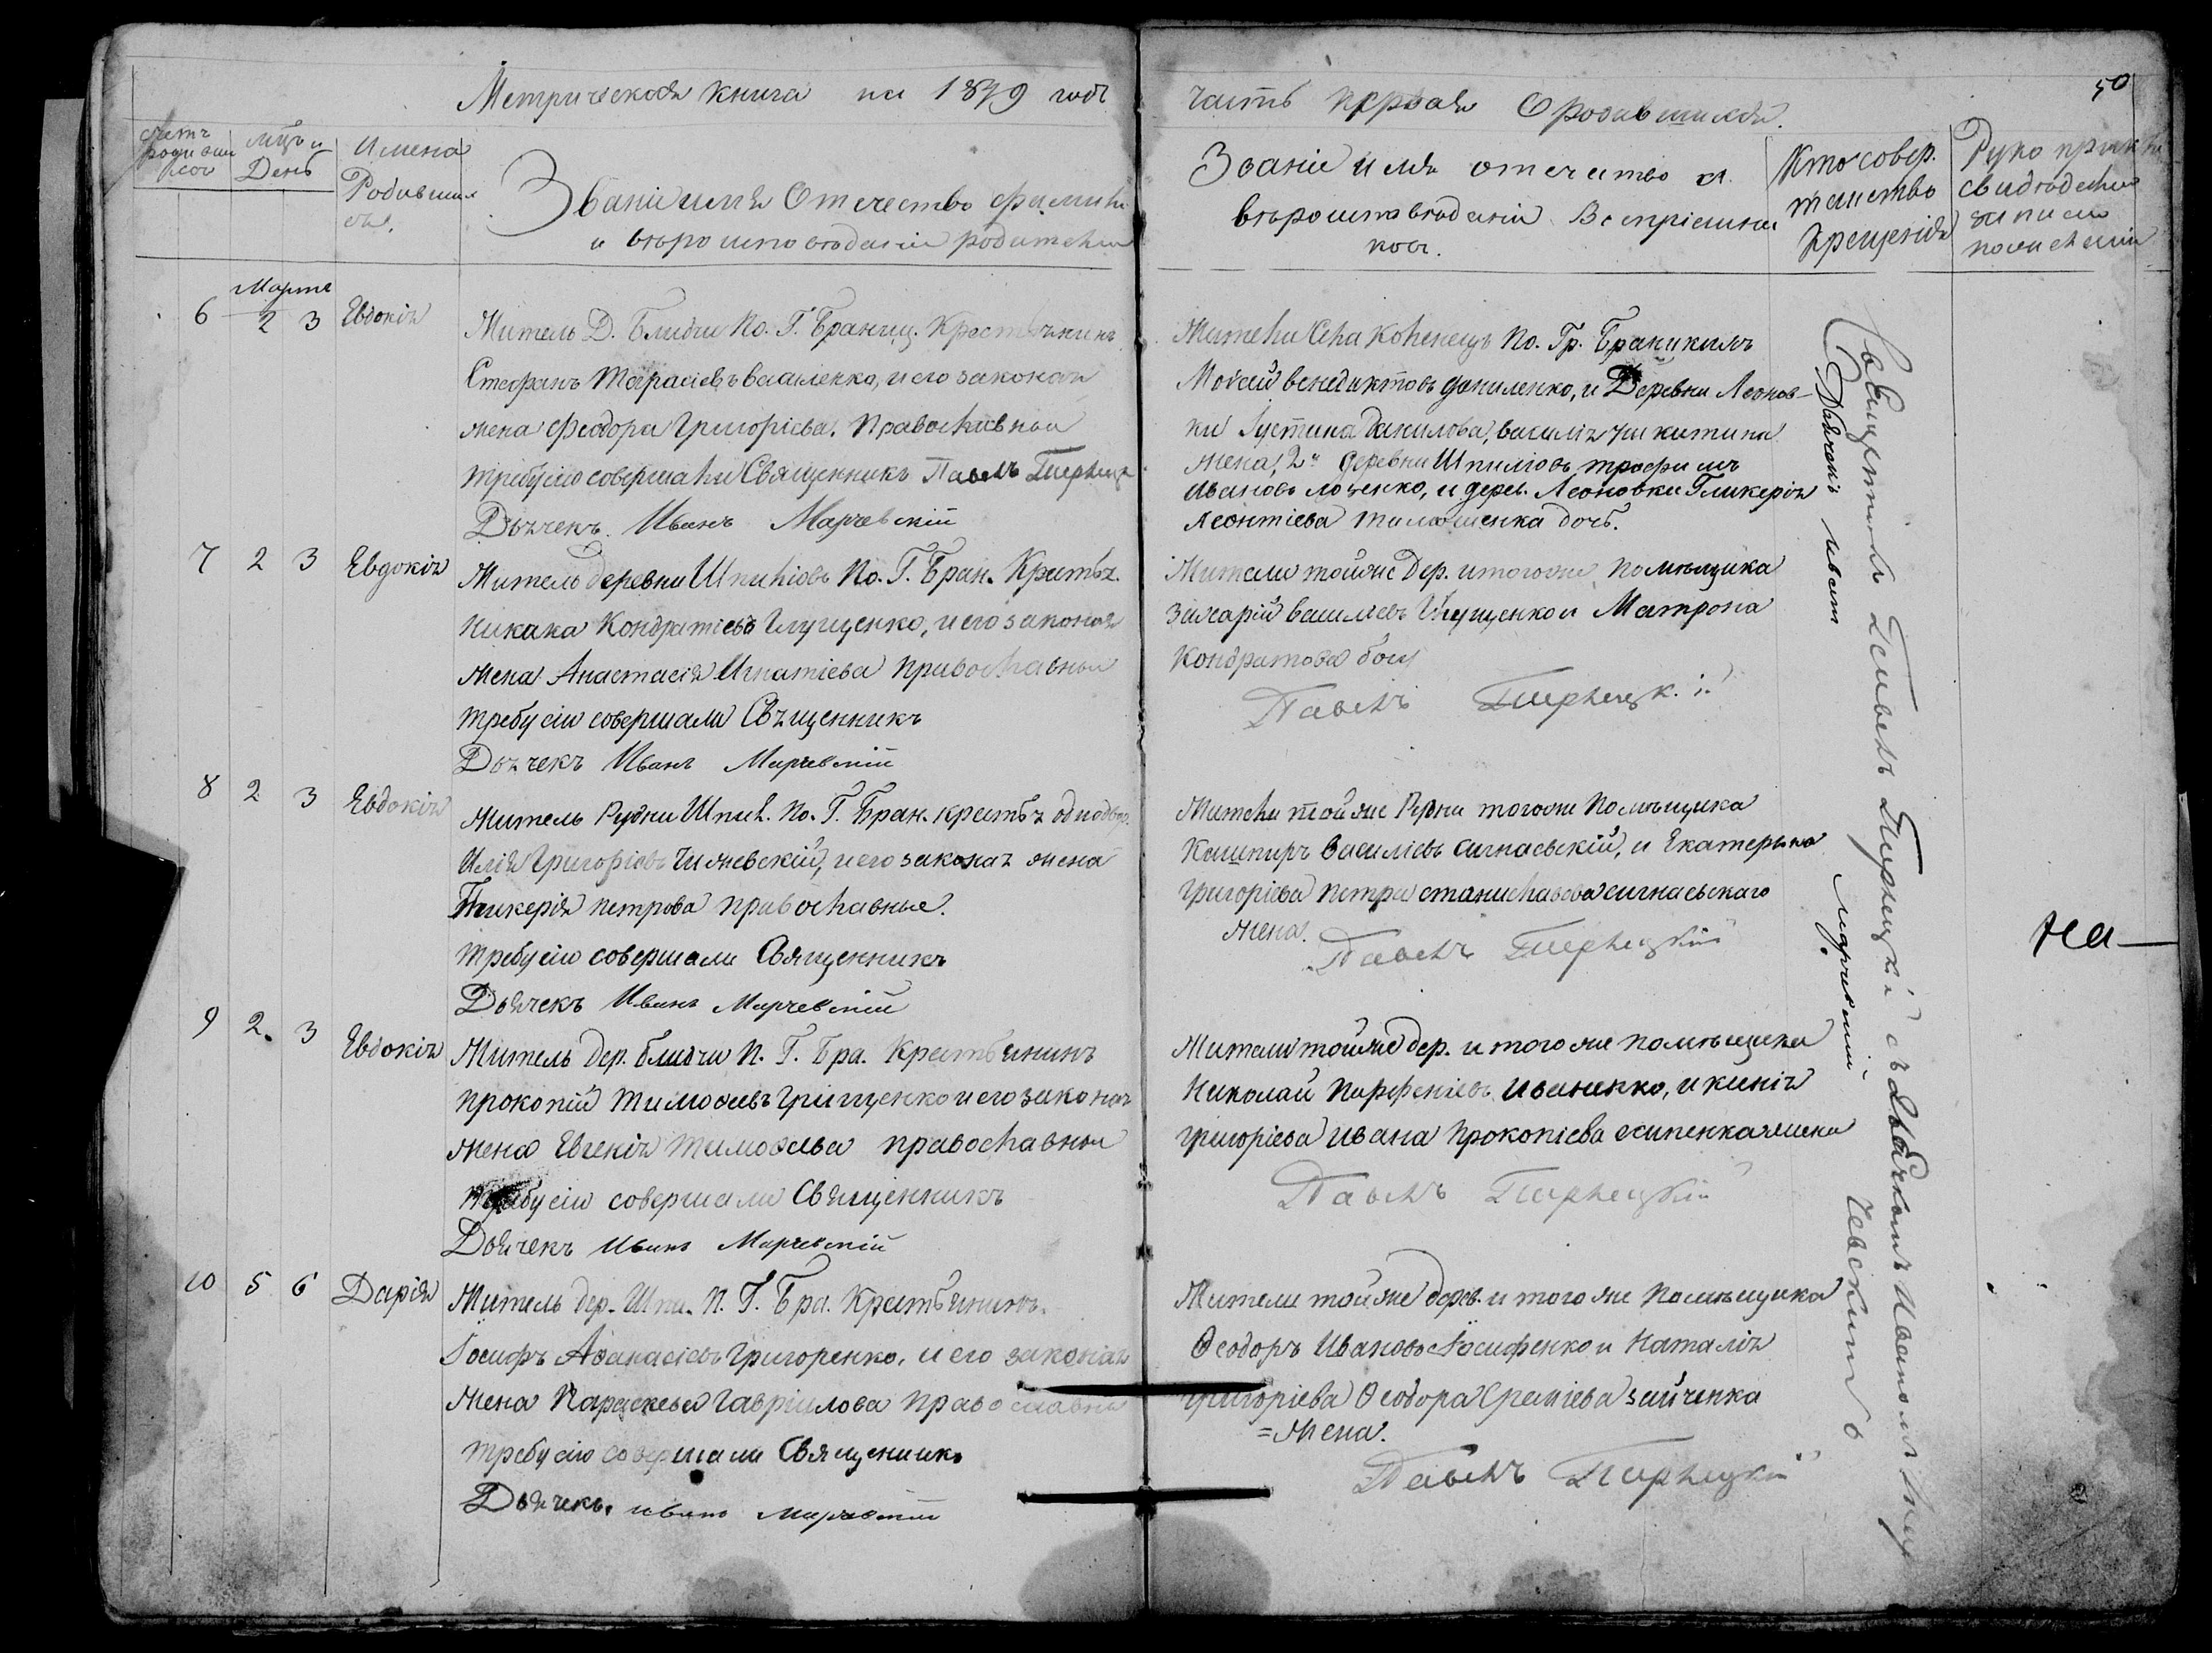 Метрическая книга на 1849 годъ
часть первая О родившихся.
50
счетъ родившихся
Мцъ и День
Имена Родившихся.
Званіе имя Отечество фамилія
и вѣроисповѣданіе родителей
Званіе имя отечество
вѣроисповѣданіе Воспріемни
ковъ.
Кто совер.
таинство
крещенія
Руко прикл
свидѣтелей
записи
Марта
6 2 3 Евдокія
Житель Д. Блидчи По. Г. Браниц. Крестьянинъ
Стефанъ Тарасіевъ василенко, и его законая
жена Феодора Григоріева. Православныи
требу сію совершали Священникъ Павелъ
Дьячекъ. Иванъ Марчевскій
Жители Села Коленецъ По. Гр. Браникимъ
Мойсей венедиктовъ даниленко, и Деревни Леонов-
ки Іустина Данилова, василія никитина
жена, 2я деревни Шпиліовъ трофимъ
Ивановъ лозенко, и дерев. Леоновки Гликерія
Леонтіева тимошенка дочь.
7 2 3 Евдокія
Житель деревни Шпиліовъ По. Г. Бран. Крестья.
Никана Кондратіевъ Глущенко, и его законая
жена Анастасія Игнатіева православныи
требу сію совершали Священникъ
Дьячекъ Иванъ Марчевскій
Жители тойже Дер. и тогоже помѣщика
Захарій василіевъ Глущенко и Матрона
Кондратова
Павелъ
8 2 3 Евдокія
Житель Рудни Шпил. По. Г. Бран. крестья однодвор.
Илія Григоріевъ Чижевскій, и его законая жена
Гликерія петрова православные.
требу сію совершали Священникъ
Дьячекъ Иванъ Марчевскій
Жители тойже Рудни тогоже Помѣщика
Кашпиръ Василіевъ сигнаевскій, и Екатерина
Григоріева петра станиславова сигнаевскаго
жена.
Павелъ
9 2. 3 Евдокія
Житель дер. блидчи П. Г. Бра. Крестьянинъ
прокопій Тимофіевъ Грищенко и его законая
жена Евгенія Тимофіева православныи
требу сію совершали Священникъ
Дьячекъ Иванъ Марчевскій
Жители тойже дер. и тогоже помѣщика
Николай Парфеніевъ Иваненко, и
Григоріева ивана Прокопіева осипенка жена
Павелъ
10 5 6 Дарія
Житель дер. Шпи. П. Г. Бра. Крестьянинъ.
Іосифъ Афанасіевъ Григоренко, и его законая
жена Параскева Гавріилова Православны
требу сію совершали Священникъ
Дьячекъ. иванъ Марчевскій
Жители тойже дерев. и тогоже Помѣщика
Ѳеодоръ Ивановъ Іосифенко и Наталія
Григоріева Ѳеодора Еремѣева зайченка
=жена.
Павелъ
Священникъ Павелъ съ Дьячкомъ Иваномъ Мар
чевскимъ
Дьячекъ иванъ марчевскій
на—